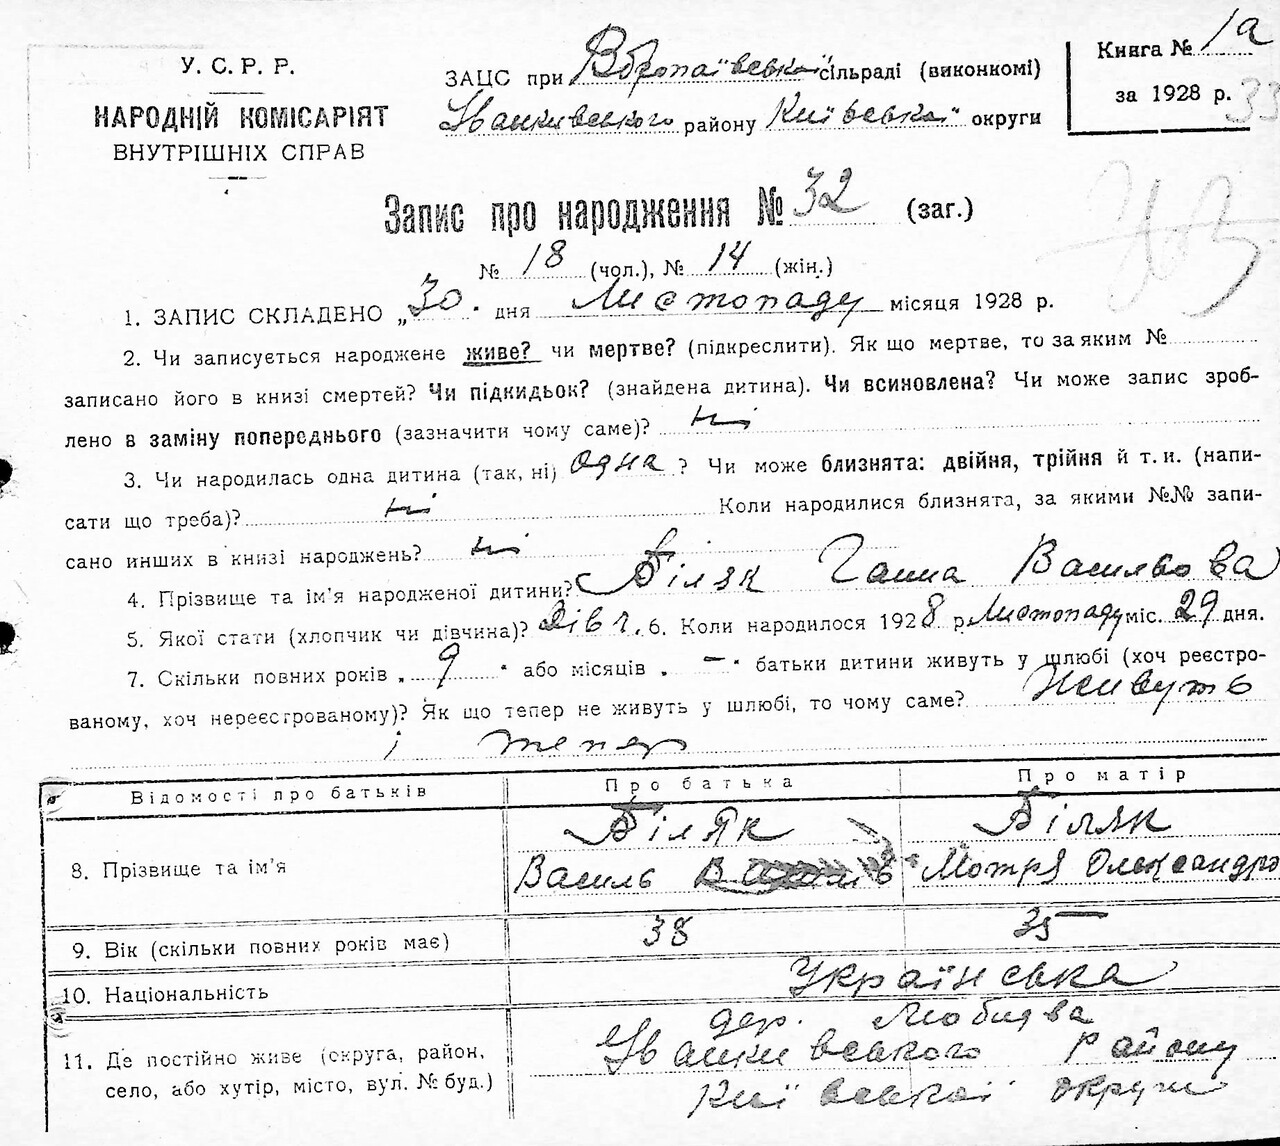 У. С. Р. Р.
НАРОДНІЙ КОМІСАРІЯТ
ВНУТРІШНІХ СПРАВ
ЗАЦС при Воропаївській сільраді (виконкомі)
Іванківського району Київської округи
Книга № 1а
за 1928 р.
33
Запис про народження № 32 (заг.)
№ 18 (чол.), № 14 (жін.)
1. ЗАПИС СКЛАДЕНО „30" дня Листопаду місяця 1928 р.
2. Чи записується народжене живе? чи мертве? (підкреслити). Як що мертве, то за яким №
записано його в книзі смертей? Чи підкидьок? (знайдена дитина). Чи всиновлена? Чи може запис зроб-
лено в заміну попереднього (зазначити чому саме)? ні
3. Чи народилась одна дитина (так, ні) одна ? Чи може близнята: двійня, трійня й т. и. (напи-
сати що треба)? ні Коли народилися близнята, за якими №№ запи-
сано инших в книзі народжень? ні
4. Прізвище та ім'я народженої дитини? Біляк Ганна Васильова
5. Якої стати (хлопчик чи дівчина)? Дівч. 6. Коли народилося 1928 р. Листопаду міс. 29 дня.
7. Скільки повних років „ 9 " або місяців „ — " батьки дитини живуть у шлюбі (хоч реєстро-
ваному, хоч нереєстрованому)? Як що тепер не живуть у шлюбі, то чому саме? Живуть
і тепер
Відомості про батьків Про батька Про матір
8. Прізвище та ім'я Біляк Василь Біляк Мотря Олександро
9. Вік (скільки повних років має) 38 35
10. Національність Українська
11. Де постійно живе (округа, район,
село, або хутір, місто, вул. № буд.)
дер.
Іванківського району
Київської округи